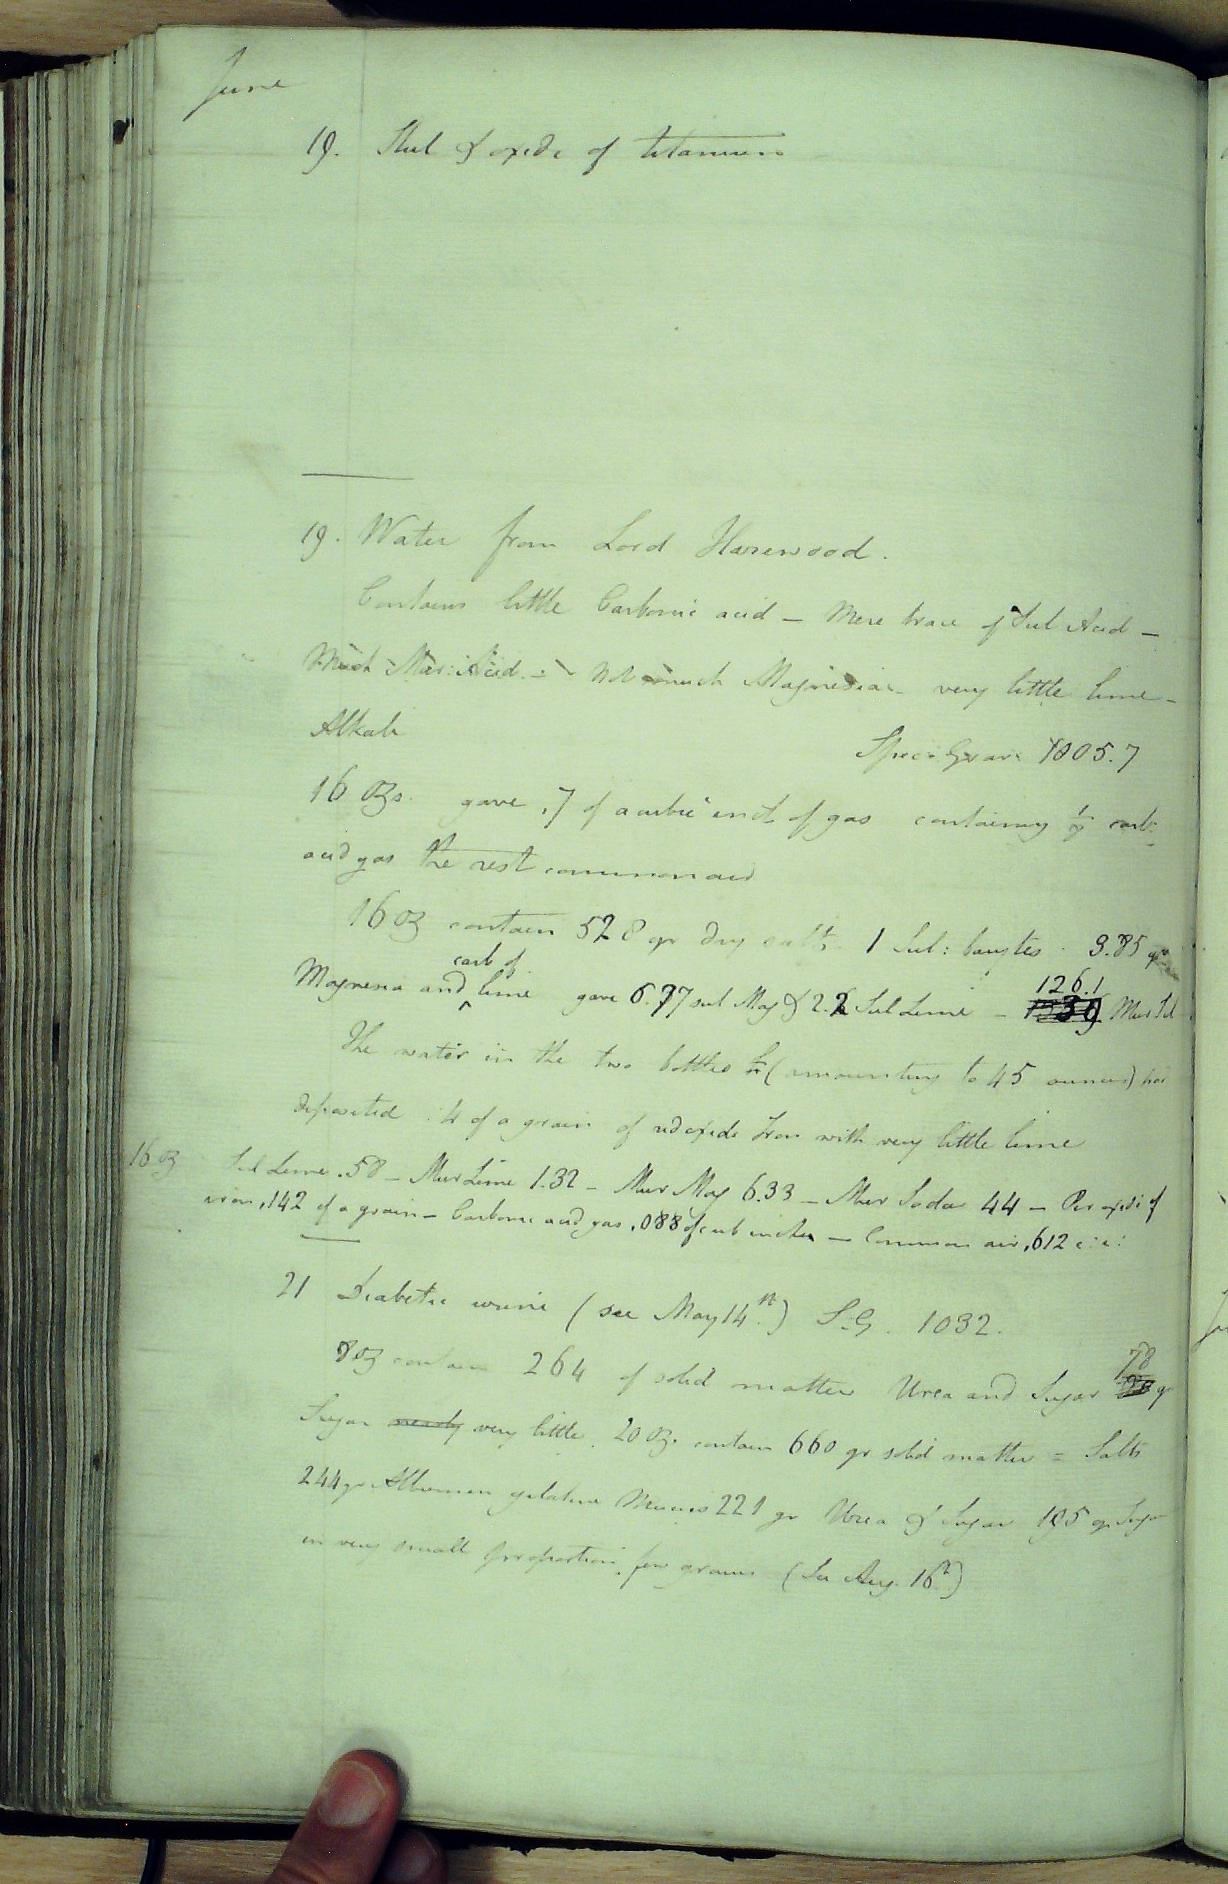 June
19. Steel & oxide of titanium
19. Water from Lord Harewood.
Contains little Carbonic acid – Mere trace of Sul Acid –
Much Mur: Acid. – Not much Magnesia – very little lime –
Alkali Spec: Grav: 1005.7
16 ozs. gave .7 of a cubic inch of gas containing 1/8 carb:
acid gas the rest common air
16 oz contain 52.8 gr dry salts 1 Sul: barytes 3.85 gr
Magnesia and carb of lime gave 6.77 sul Mag & 2.2 Sul Lime – 126.1 Mur Sil
The water in the two bottles (amounting to 45 ounces) had
deposited .4 of a grain of red oxide Iron with very little lime
16 oz Sul Lime .58 – Mur Lime 1.32 – Mur Mag 6.33 – Mur Soda 44 – Per oxide of
iron .142 of a grain – Carbonic acid gas .088 of cub inches – Common air .612 c: i:
21 Diabetic urine (see May 14th.) S.G. 1032.
8 oz contain 264 of solid matter Urea and Sugar 78 gr
Sugar nearly very little. 20 oz. contain 660 gr solid matter = Salts
244 gr Albumen gelatine Mucus 221 gr Urea & Sugar 195 gr Sugar
in very small proportion, few grains (See Aug. 16th)